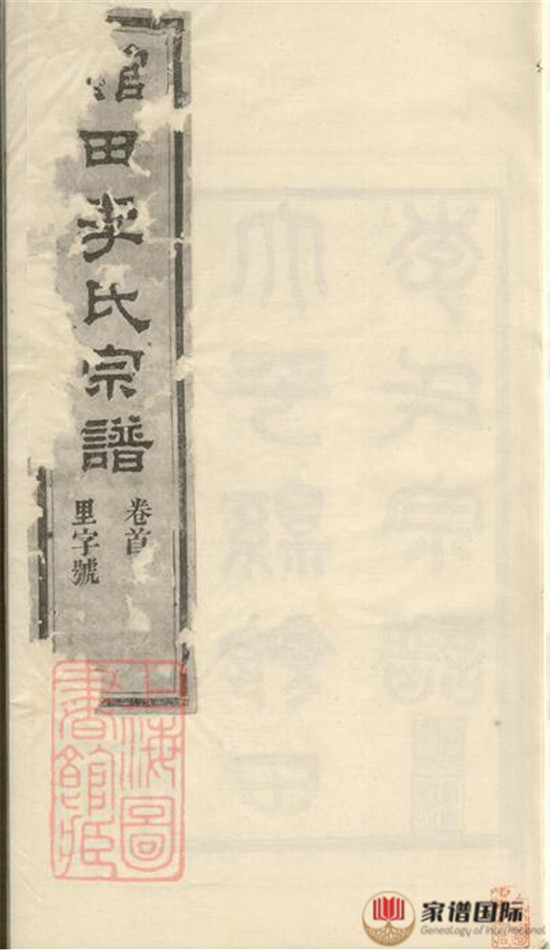 館田李氏宗譜
卷首
里字號
上海圖
書館藏
家谱国际
Genealogy of International